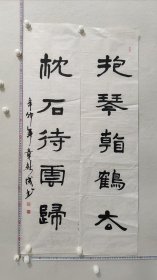 抱琴看鶴去
枕石待雲歸
辛卯年